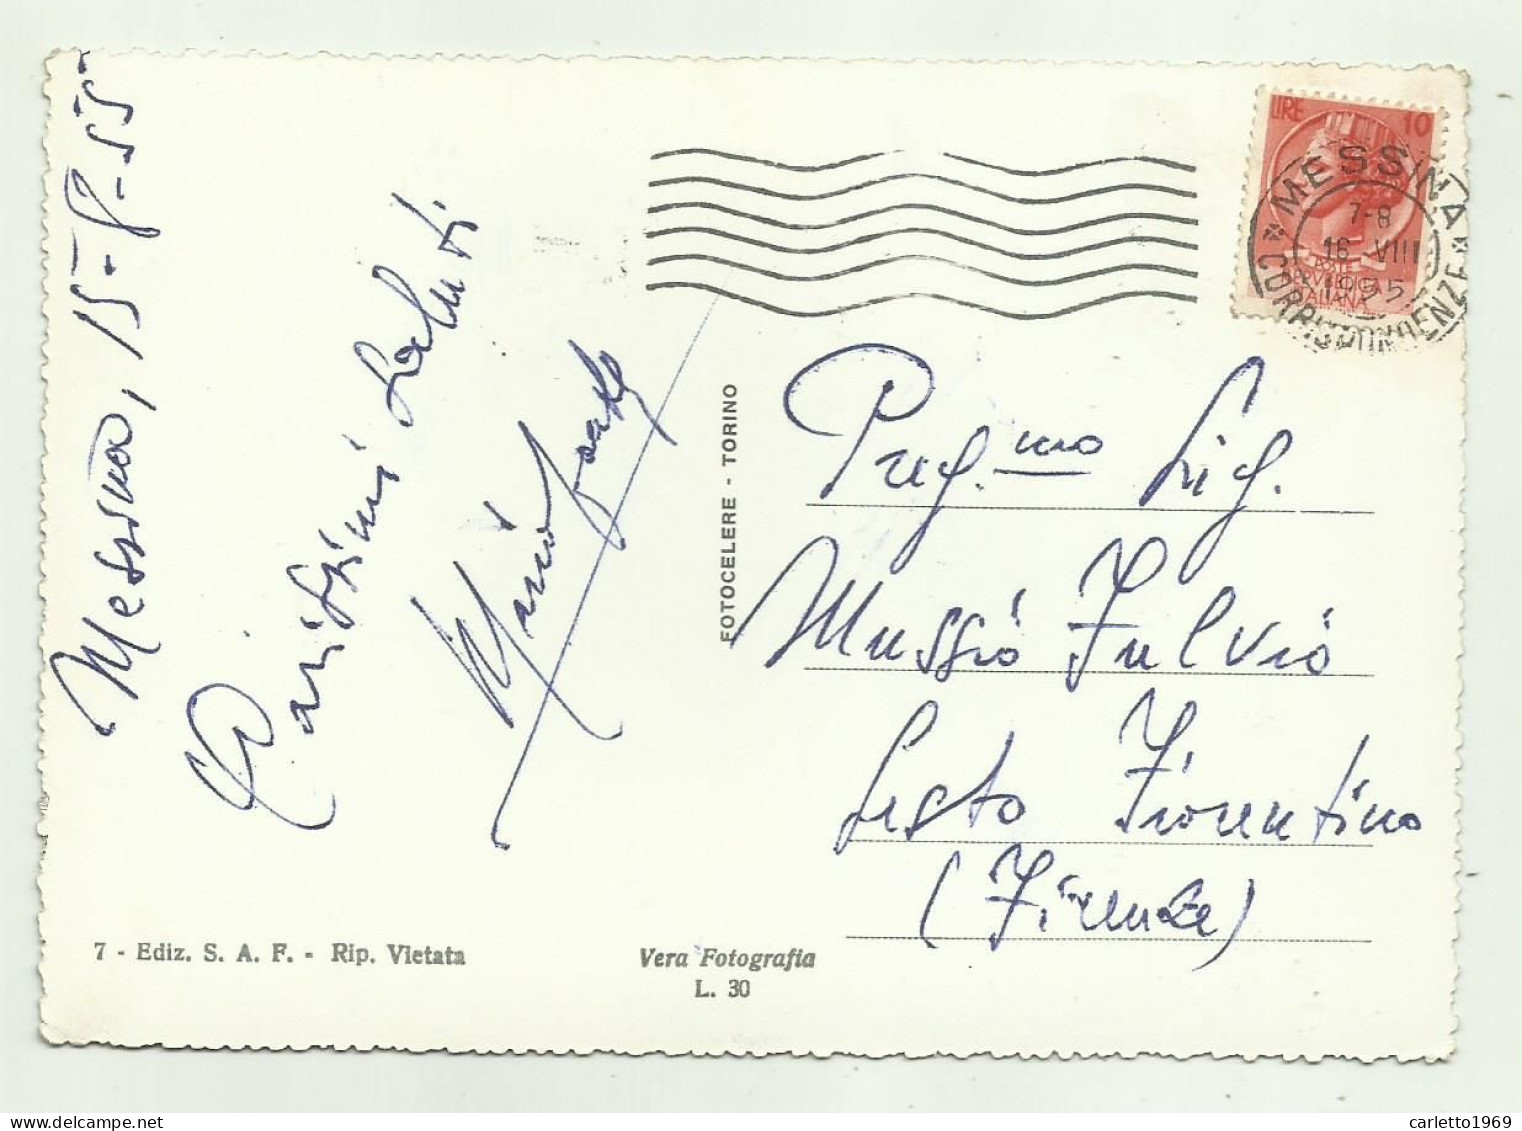 Messina, 15-8-55
Carissimi saluti
Mario
7 - Ediz. S. A. F. - Rip. Vietata
Vera Fotografia
L. 30
FOTOCELERE - TORINO
LIRE 10
POSTE
REPVBBLICA
ITALIANA
MESSINA
7-8
16 VIII
1955
CORRISPONDENZE
Preg.mo Sig.
Mussio Fulvio
Sesto Fiorentino
(Firenze)
carletto1969